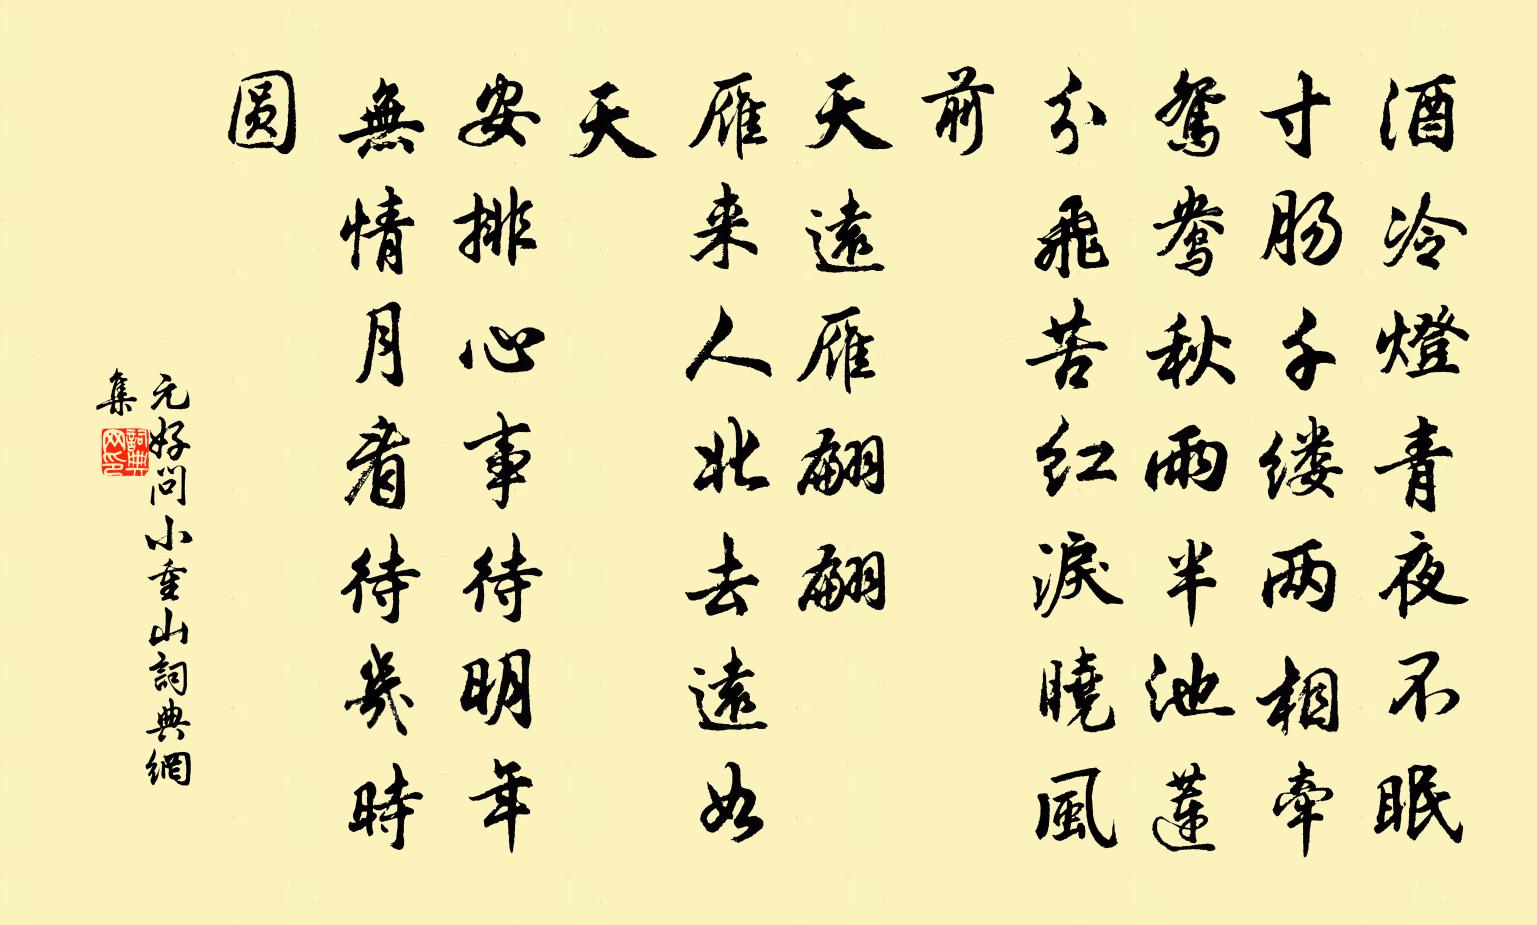 酒冷燈青夜不眠
寸肠千缕两相牽
鴛鴦秋雨半池蓮
分飛苦红淚曉風
前
天遠雁翩翩
雁来人北去遠如
天
安排心事待明年
無情月看待幾時
圆
元好问小重山詞典網
集
詞典网印